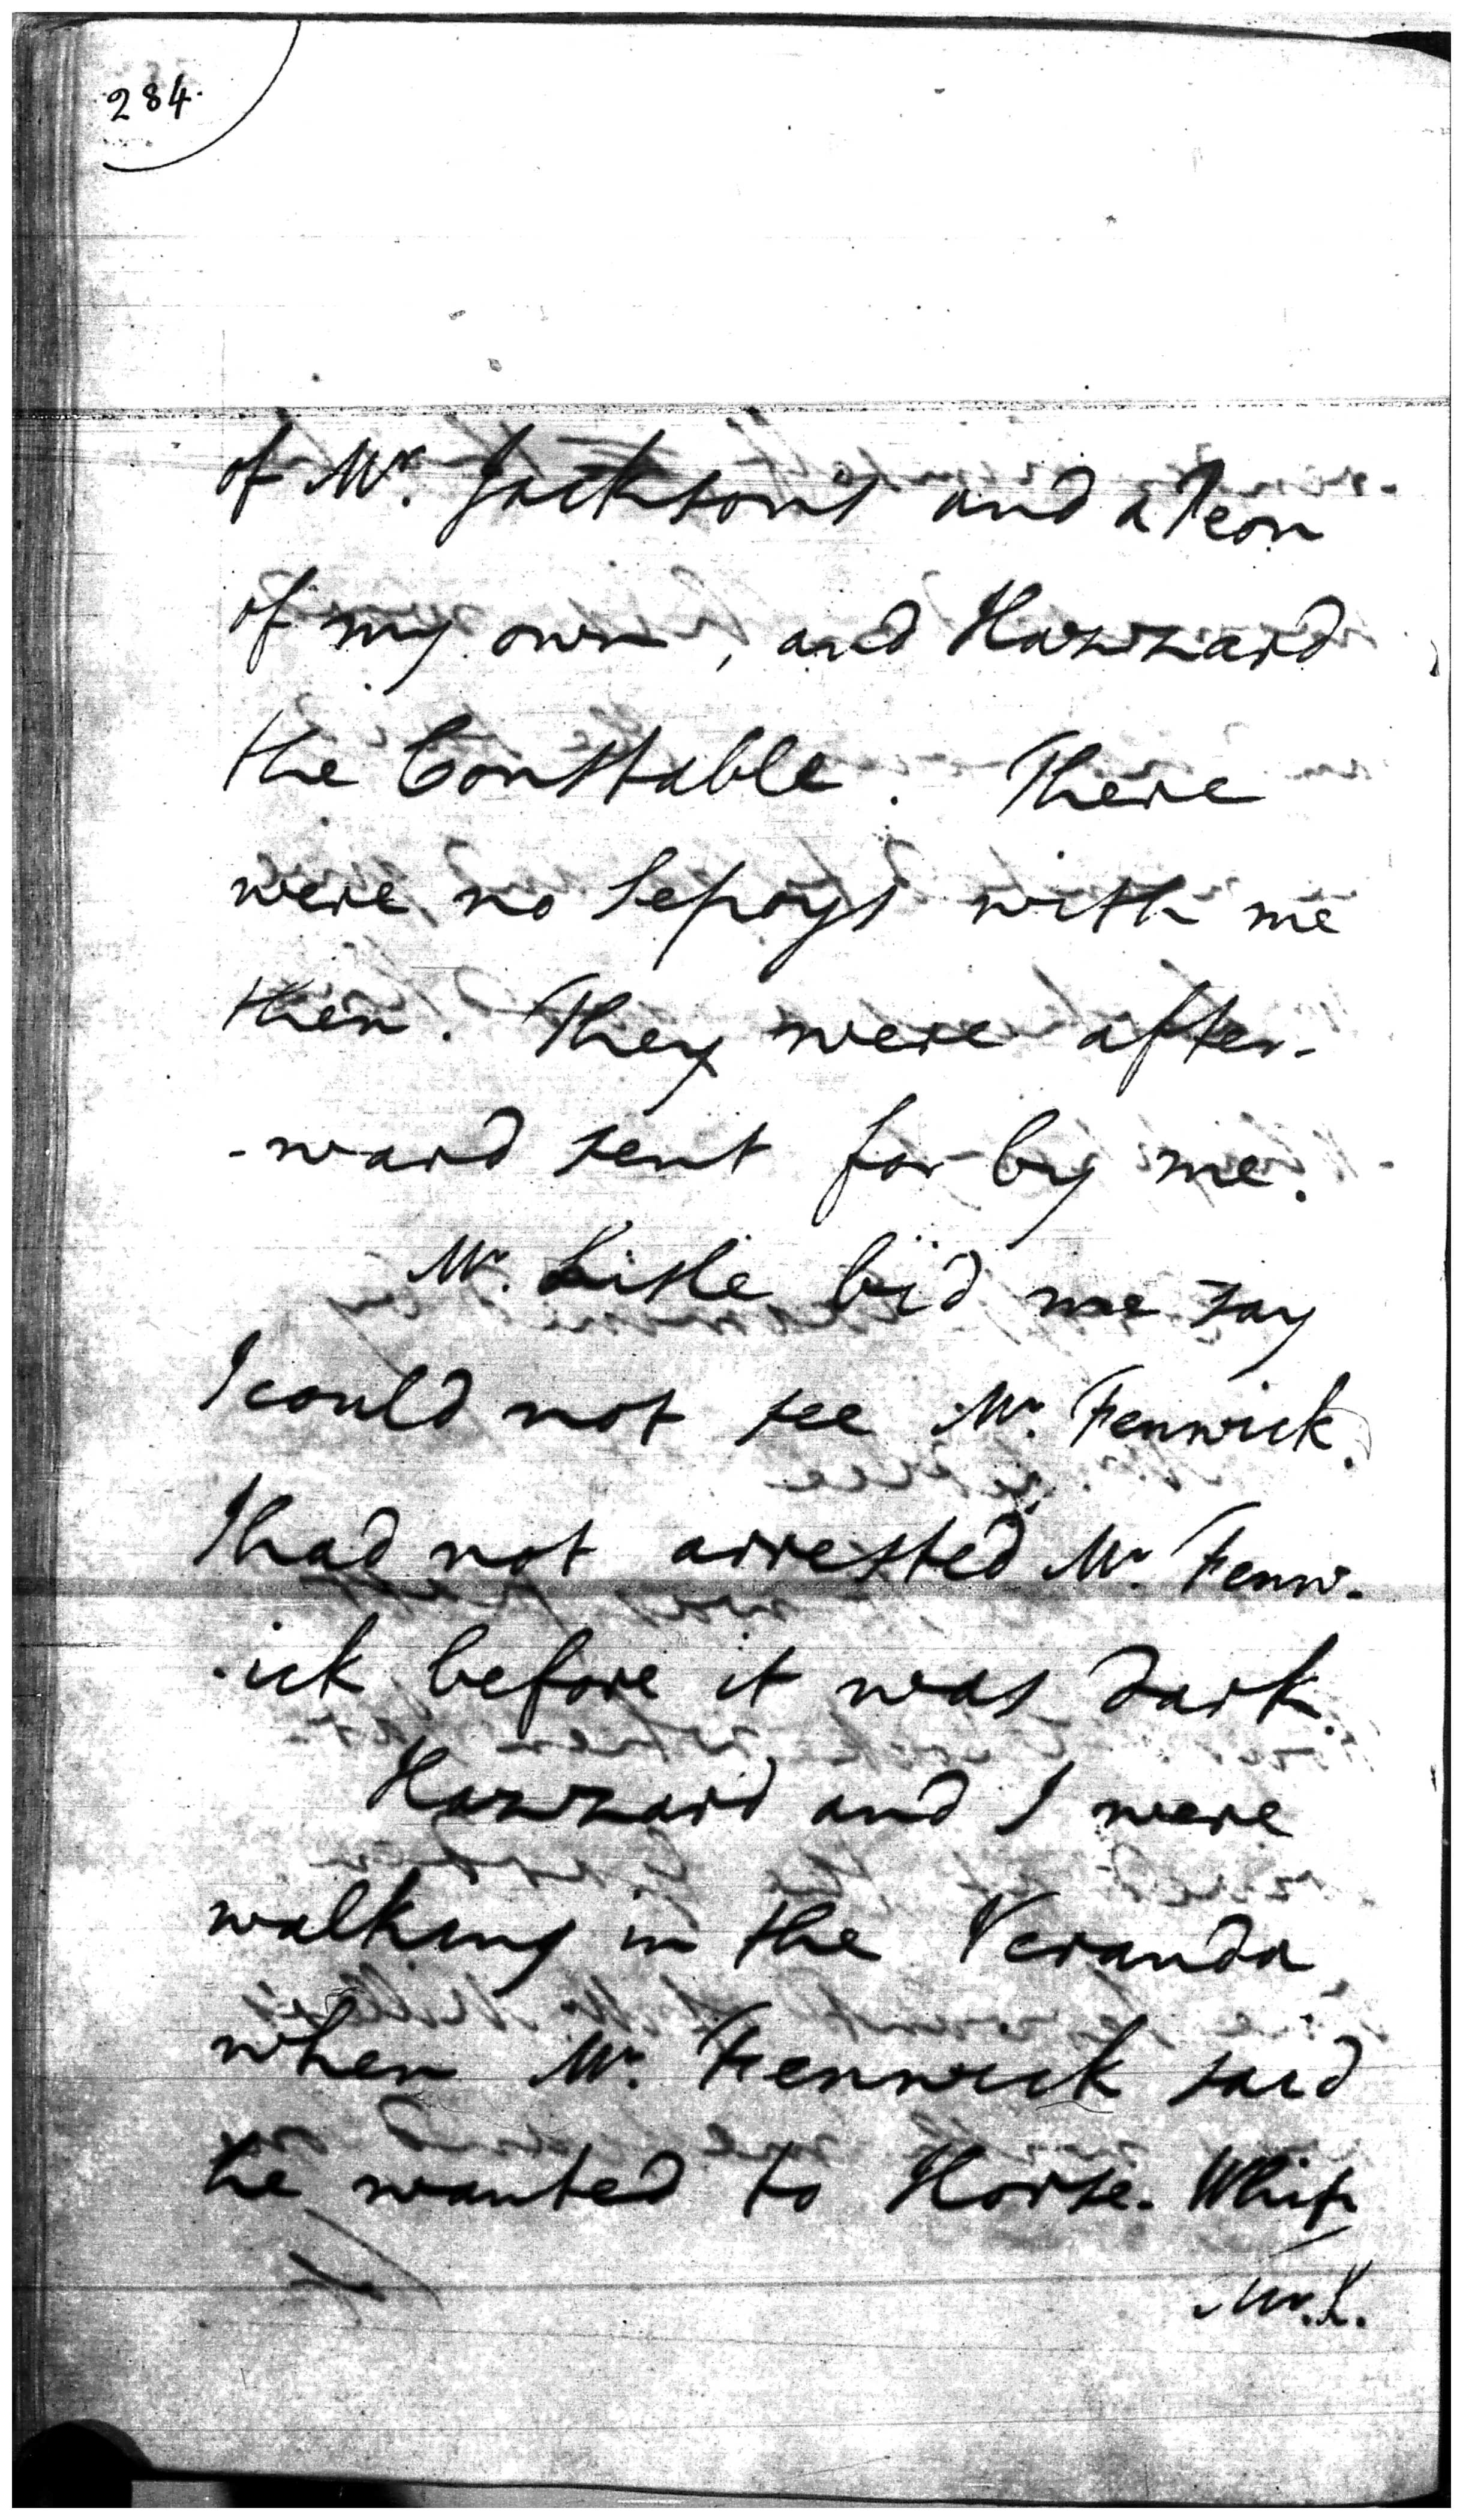 284.
of Mr. Jackson's and a Peon
of my own, and Hazzard
the Constable. There
were no Sepoys with me
then. They were after-
-ward sent for by me.
Mr. Lisle bid me say
I could not see Mr. Fenwick.
I had not arrested Mr. Fenw-
-ick before it was dark.
Hazzard and I were
walking in the Veranda
when Mr. Fenwick said
he wanted to Horse-Whip
Mr. L.